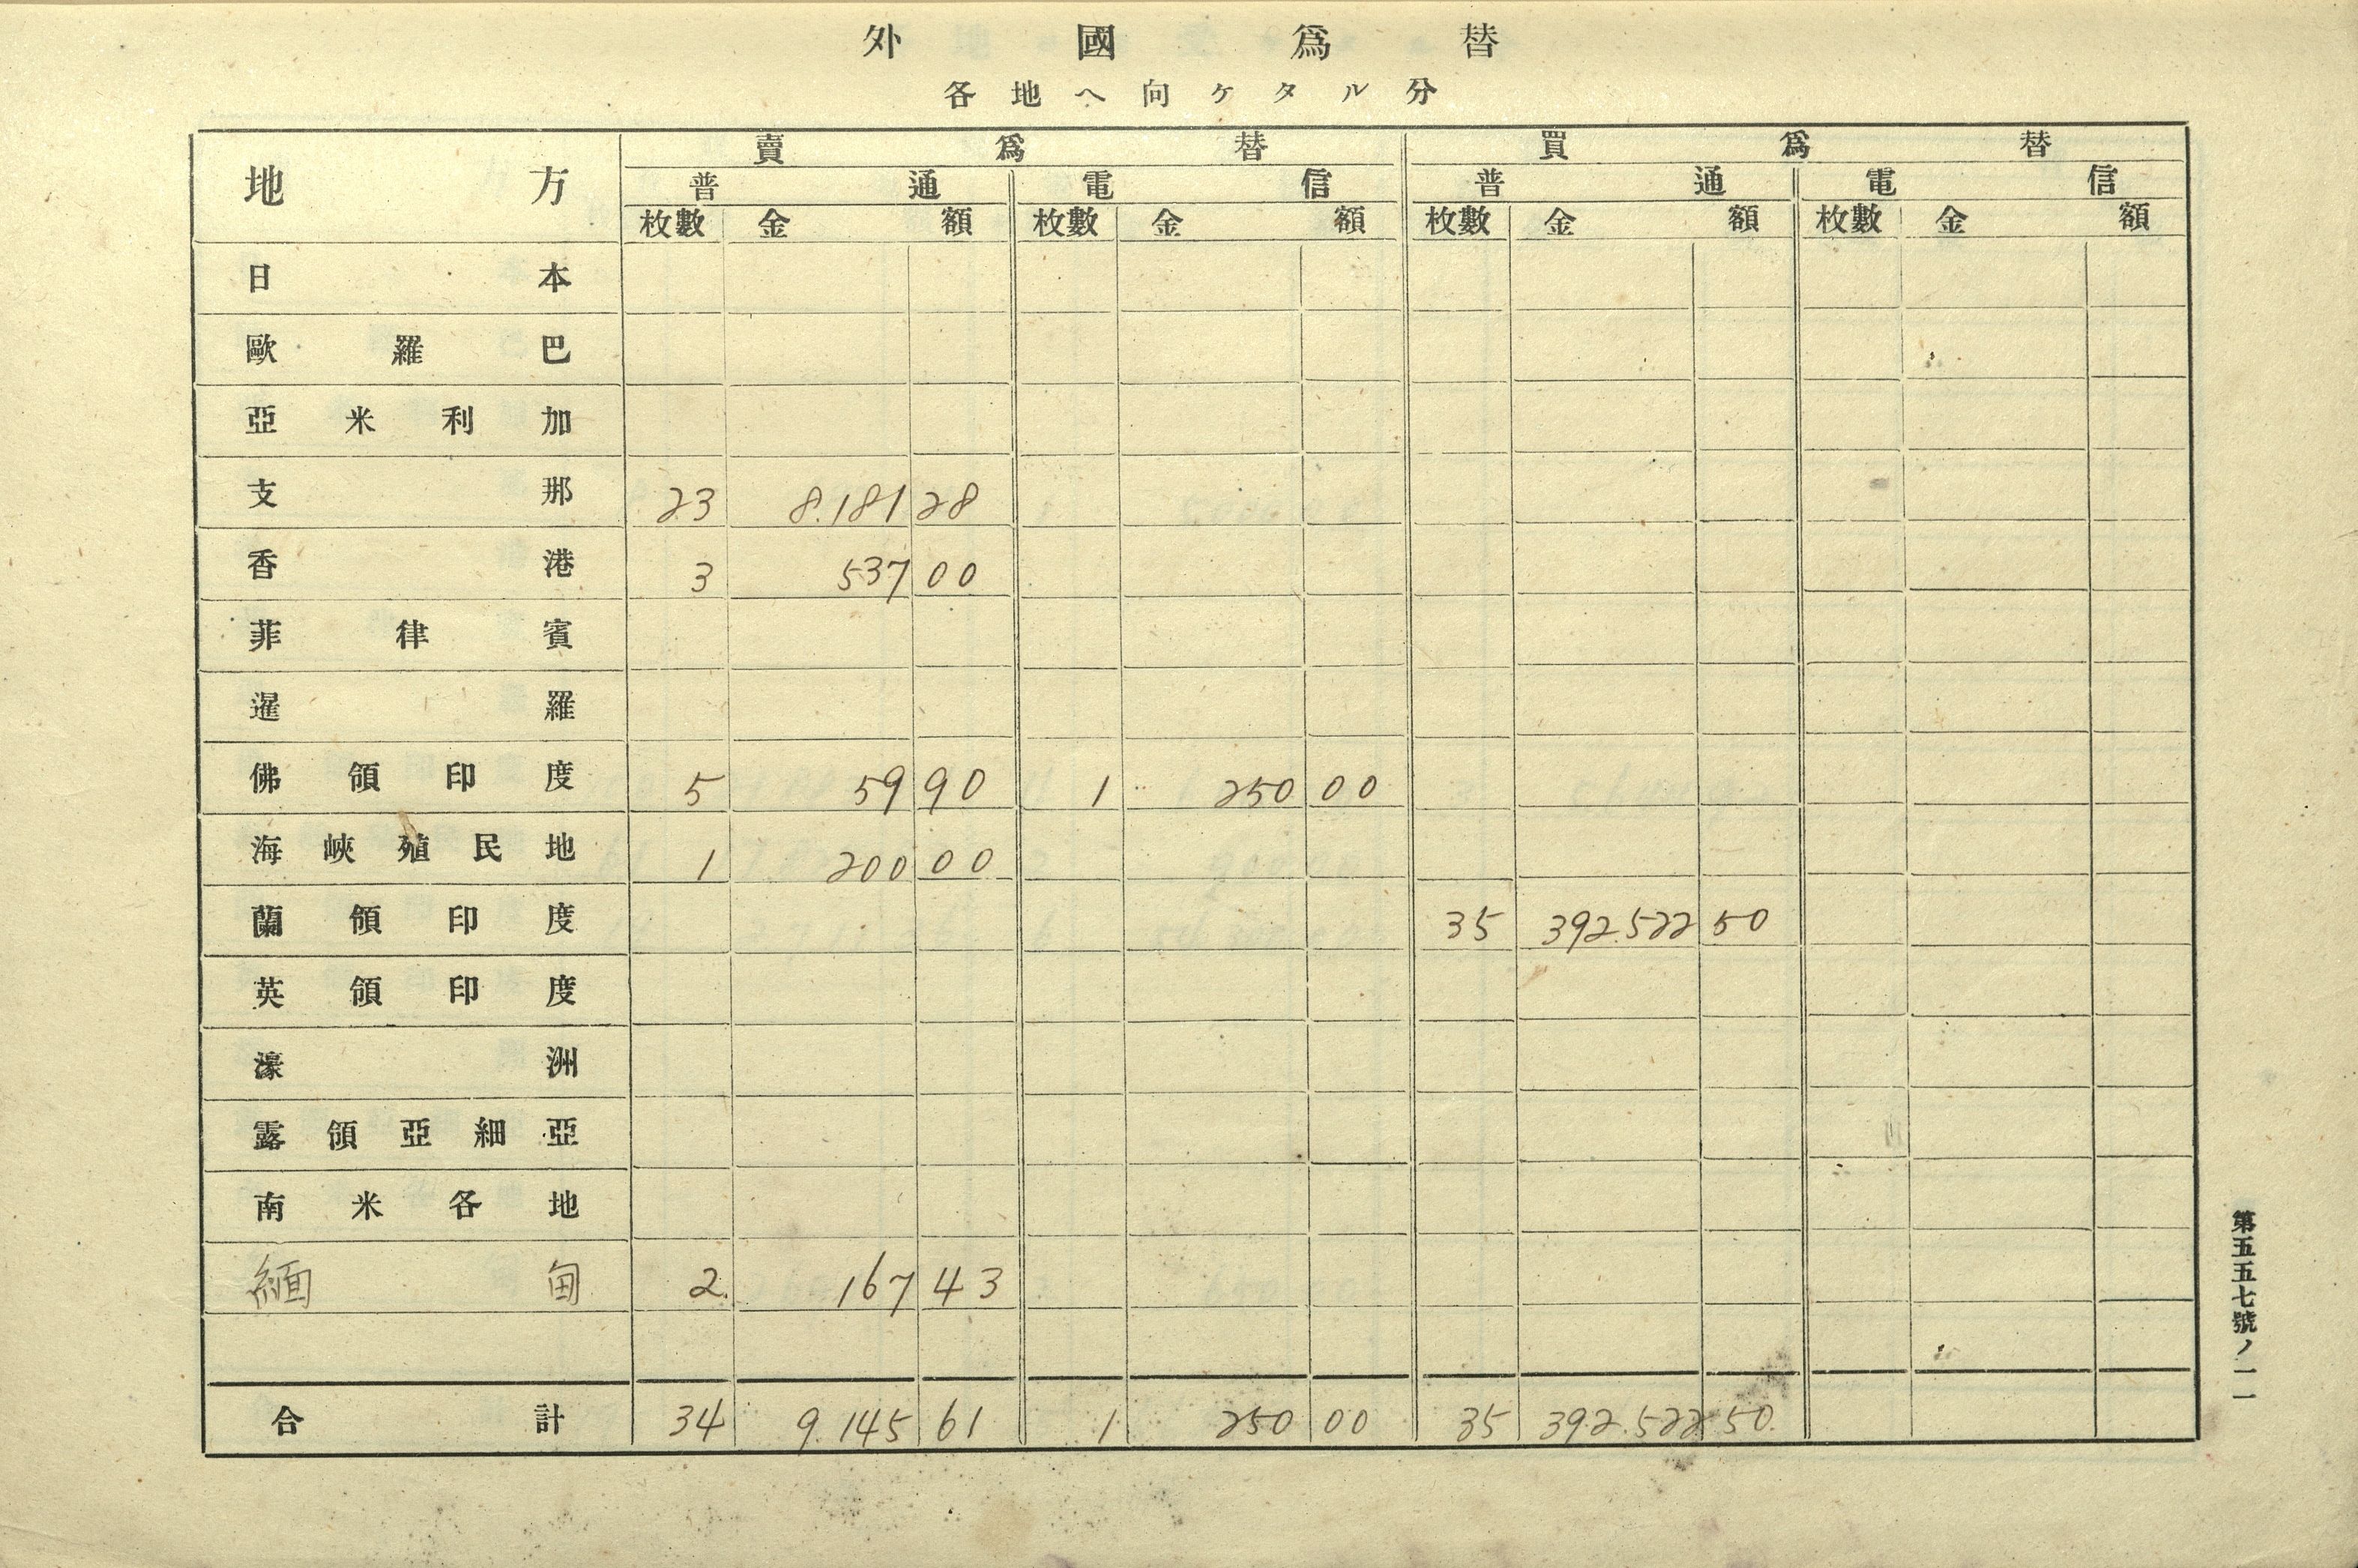 外國爲替
各地ヘ向ケタル分
地方 賣爲替 買爲替
普通 電信 普通 電信
枚數 金額 枚數 金額 枚數 金額 枚數 金額
日本
歐羅巴
亞米利加
支那 23 8.181 28
香港 3 537 00
菲律賓
暹羅
佛領印度 5 59 90 1 250 00
海峽殖民地 1 200 00
蘭領印度 35 392.522 50
英領印度
濠洲
露領亞細亞
南米各地
緬甸 2. 167 43
合計 34 9.145 61 1 250 00 35 392.522 50.
第五五七號ノ一一